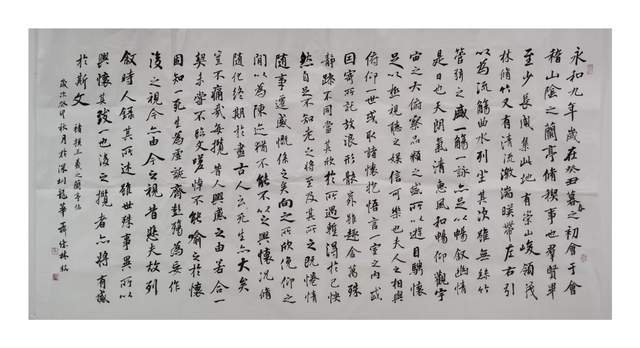 永和九年歲在癸丑暮春之初會于會
稽山陰之蘭亭脩禊事也群賢畢
至少長咸集此地有崇山峻領茂
林脩竹又有清流激湍暎帶左右引
以為流觴曲水列坐其次雖無絲竹
管絃之盛一觴一詠亦足以暢敘幽情
是日也天朗氣清惠風和暢仰觀宇
宙之大俯察品類之盛所以遊目騁懷
足以極視聽之娛信可樂也夫人之相與
俯仰一世或取諸懷抱悟言一室之內或
因寄所託放浪形骸雖趣舍萬殊
靜躁不同當其欣於所遇暫得於己怏
然自足不知老之將至及其所之既惓情
隨事遷感慨係之矣向之所欣俛仰之
閒以為陳迹猶不能不以之興懷況脩
隨化終期於盡古人云死生亦大矣
豈不痛哉每攬昔人興感之由若合一
契未嘗不臨文嗟悼不能喻之於懷
固知一死生為虛誕齊彭殤為妄作
後之視今亦由今之視昔悲夫故列
敘時人錄其所述雖世殊事異所以
興懷其致一也後之攬者亦將有感
於斯文
王羲之蘭亭
歲次癸卯秋月於深圳龍華